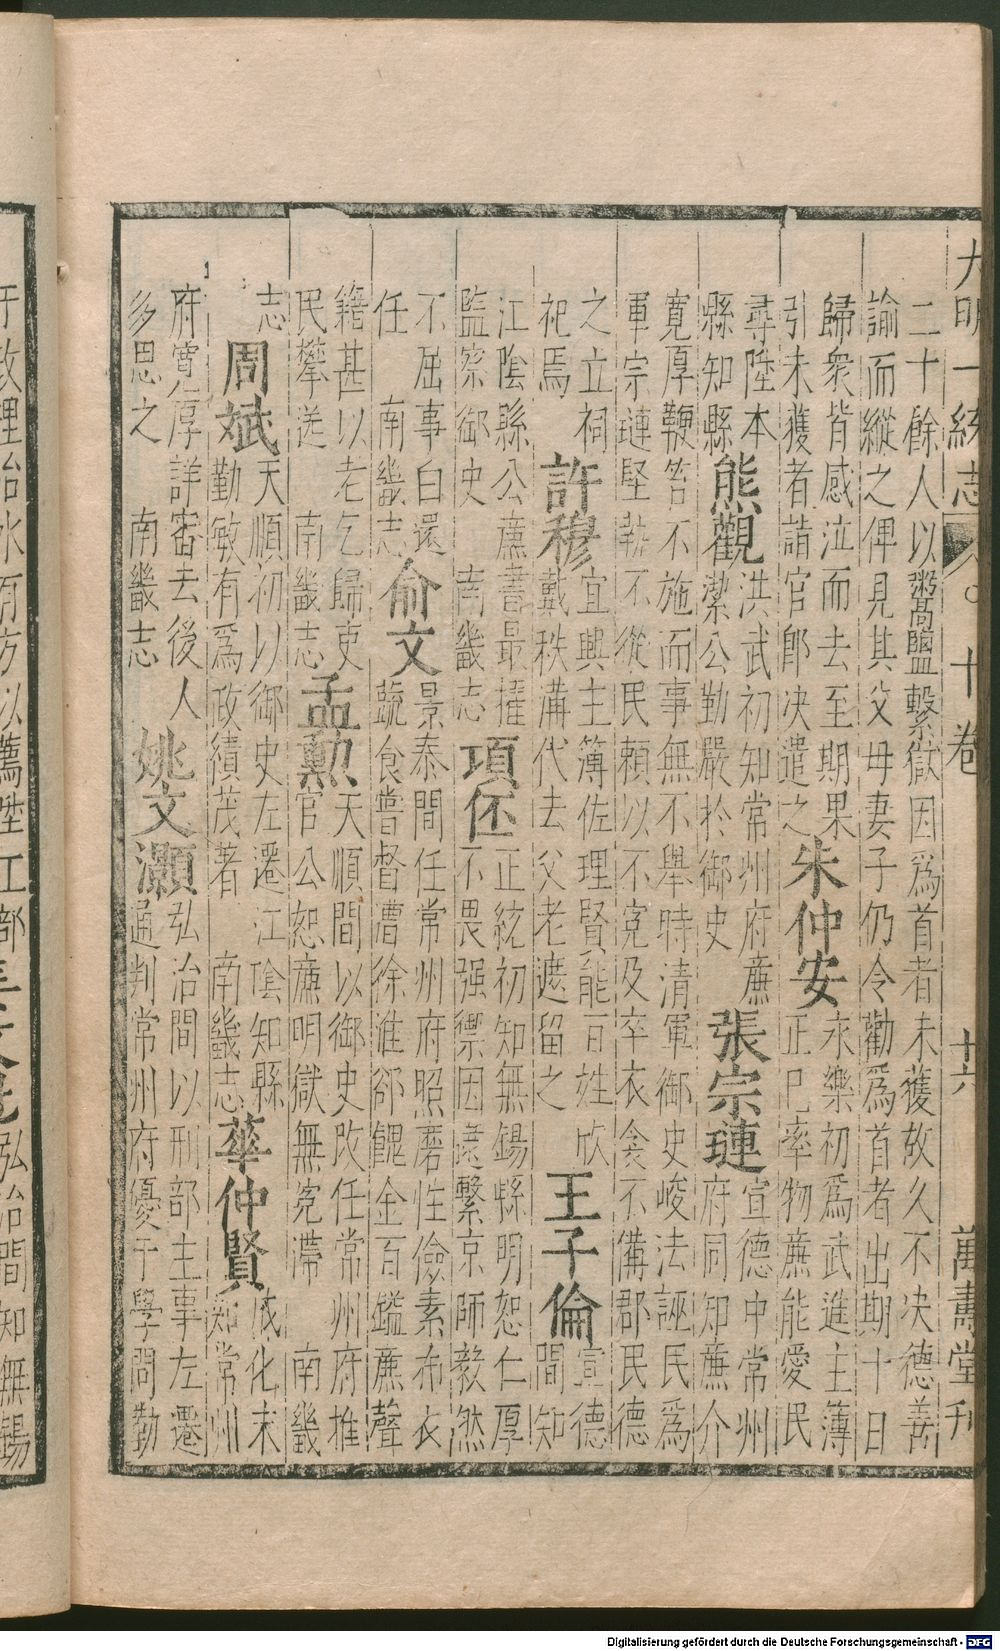 大明一統志 十卷 十六 萬壽堂刊
二十餘人以鬻鹽繫獄因為首者未獲故久不决德善
諭而縱之俾見其父母妻子仍令勸為首者出期十日
歸衆皆感泣而去至期果
引未獲者詣官即决遣之
朱仲安
永樂初為武進主簿
正巳率物廉能愛民
尋陞本
縣知縣
熊觀
洪武初知常州府廉
潔公勤嚴於御史
張宗璉
宣德中常州
府同知廉介
寛厚鞭笞不施而事無不舉時清軍御史峻法誣民為
軍宗璉堅執不從民賴以不寃及卒衣衾不備郡民德
之立祠
祀焉
許穆
宜興主簿佐理賢能百姓欣
戴秩滿代去父老遮留之
王子倫
宣德
間知
江陰縣公廉書最擢
監察御史 南畿志
項伾
正統初知無錫縣明恕仁厚
不畏强禦因逺繫京師教然
不屈事白還
任 南畿志
俞文
景泰間任常州府照磨性儉素布衣
蔬食嘗督漕徐淮郤餽金百鎰廉聲
籍甚以老乞歸吏
民攀送 南畿志
孟勲
天順間以御史改任常州府推
官公恕廉明獄無寃滯 南畿
志
周斌
天順初以御史左遷江陰知縣
勤敏有為政績茂著 南畿志
華仲賢
成化末
知常州
府寛厚詳審去後人
多思之 南畿志
姚文灝
弘治間以刑部主事左遷
通判常州府優于學問勤
于政理治水有方以薦陞工部
弘治間知無錫
Digitalisierung gefördert durch die Deutsche Forschungsgemeinschaft - DFG